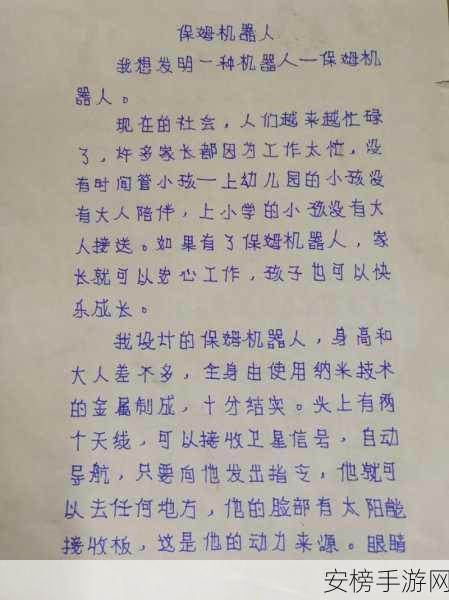 保姆机器人
我想发明一种机器人—保姆机
器人。
现在的社会，人们越来越忙碌
了，许多家长都因为工作太忙，没
有时间管小孩—上幼儿园的小孩没
有大人陪伴，上小学的小孩没有大
人接送。如果有了保姆机器人，家
长就可以安心工作，孩子也可以快
乐成长。
我设计的保姆机器人，身高和
大人差不多，全身由使用纳米技术
的金属制成，十分结实。头上有两
个天线，可以接收卫星信号，自动
导航，只要向他发出指令，他就可
以去任何地方，他的脸部有太阳能
接收板，这是他的动力来源。眼睛
安榜手游网